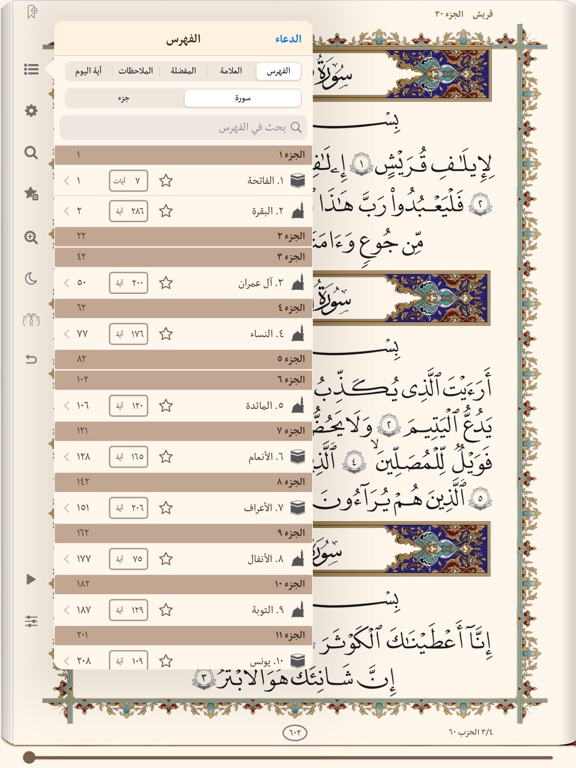 قريش الجزء ٣٠
الدعاء
الفهرس
الفهرس
العلامة
المفضلة
الملاحظات
آية اليوم
سورة
جزء
بحث في الفهرس
الجزء ١ ١
١. الفاتحة ٧ آيات ١
٢. البقرة ٢٨٦ آية ٢
الجزء ٢ ٢٢
الجزء ٣ ٤٢
٣. آل عمران ٢٠٠ آية ٥٠
الجزء ٤ ٦٢
٤. النساء ١٧٦ آية ٧٧
الجزء ٥ ٨٢
الجزء ٦ ١٠٢
٥. المائدة ١٢٠ آية ١٠٦
الجزء ٧ ١٢١
٦. الأنعام ١٦٥ آية ١٢٨
الجزء ٨ ١٤٢
٧. الأعراف ٢٠٦ آية ١٥١
الجزء ٩ ١٦٢
٨. الأنفال ٧٥ آية ١٧٧
الجزء ١٠ ١٨٢
٩. التوبة ١٢٩ آية ١٨٧
الجزء ١١ ٢٠١
١٠. يونس ١٠٩ آية ٢٠٨
سورة
لِإِيلَٰفِ قُرَيْشٍ ١
٢ فَلْيَعْبُدُوا۟ رَبَّ هَٰذَا
مِّن جُوعٍ
سورة
أَرَءَيْتَ ٱلَّذِى يُكَذِّبُ
يَدُعُّ ٱلْيَتِيمَ ٢ وَلَا يَحُضُّ
فَوَيْلٌ لِّلْمُصَلِّينَ ٤
٥ ٱلَّذِينَ هُمْ يُرَآءُونَ
سورة
إِنَّآ أَعْطَيْنَٰكَ ٱلْكَوْثَرَ
إِنَّ شَانِئَكَ هُوَ ٱلْأَبْتَرُ ٣
٦٠٢
٣/٤ الحزب ٦٠